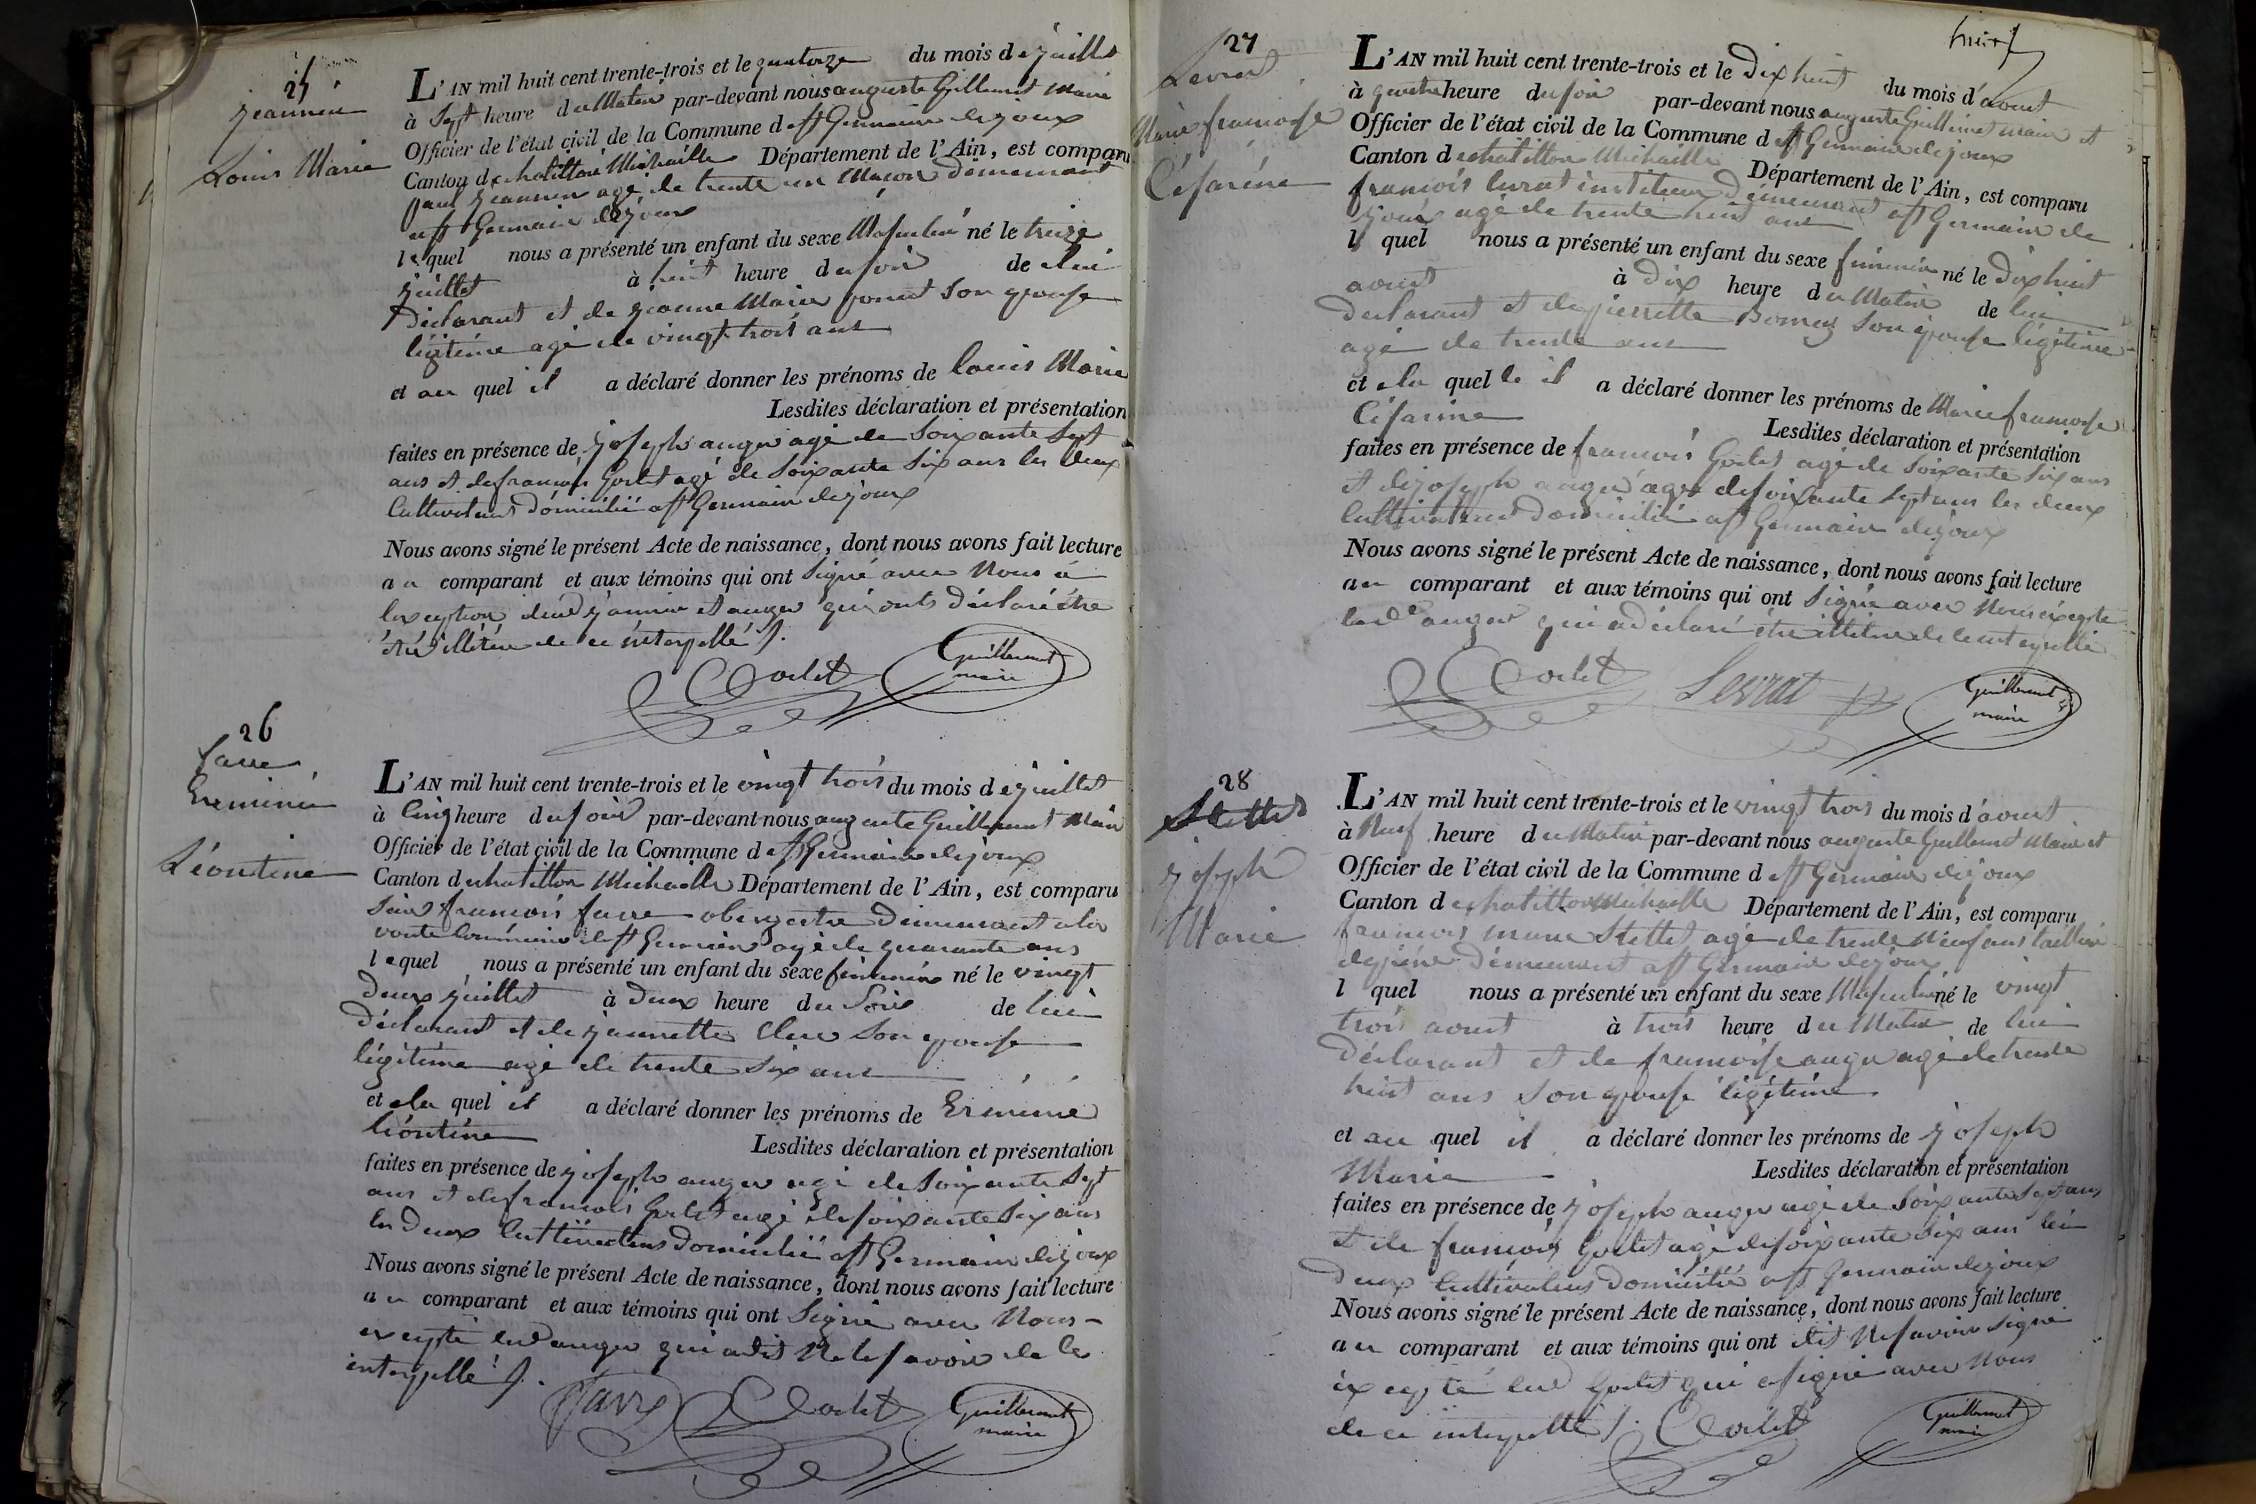 25
jeannin
Louis Marie
L'AN mil huit cent trente-trois et le quatorze du mois de juillet
à sept heure du Matin par-devant nous auguste Guillermet Maire
Officier de l'état civil de la Commune de st Germain de joux
Canton de chatillon Michaille Département de l'Ain, est comparu
jeannin agé de trente un Macon demeurant
a st Germain de joux
le quel nous a présenté un enfant du sexe Masculin né le treize
juillet à huit heure du soir de lui
Déclarant et de jeanne Marie ponet son epouse
légitime agé de vingt trois ans
et au quel il a déclaré donner les prénoms de Louis Marie
Lesdites déclaration et présentation
faites en présence de joseph auger agé de soixante sept
ans et de francois Godet agé de soixante six ans les deux
Cultivateurs domicilié a st Germain de joux
Nous avons signé le présent Acte de naissance, dont nous avons fait lecture
au comparant et aux témoins qui ont signé avec Nous à
lexception jannin et auger qui onts déclaré être
illitéré de ce interpellé
Godet Guillermet
maire
26
favre
Erminie
Léontine
L'AN mil huit cent trente-trois et le vingt trois du mois de juillet
à cinq heure du soir par-devant nous auguste Guillermet Maire
Officier de l'état civil de la Commune de st Germain de joux
Canton de chatillon Michaille Département de l'Ain, est comparu
francois favre demeurant a la
de st Germain agé de quarante ans
le quel nous a présenté un enfant du sexe feminin né le vingt
deux juillet à deux heure du Soir de lui
déclarant et de jeannette Clerc son epouse
légitime agé de trente six ans
et a la quel il a déclaré donner les prénoms de Erminie
Léontine Lesdites déclaration et présentation
faites en présence de joseph auger agé de soixante sept
ans et de francois Godet agé de soixante six ans
les deux Cultivateurs domicilié a st Germain de joux
Nous avons signé le présent Acte de naissance, dont nous avons fait lecture
au comparant et aux témoins qui ont signé avec Nous
excepté led auger qui a dit Ne le savoir de ce
interpellé
favre Godet Guillermet
maire
huit
27
Levrat
Marie francoise
Césarine
L'AN mil huit cent trente-trois et le Dix huit du mois d'aout
à quatre heure du soir par-devant nous auguste Guillermet maire et
Officier de l'état civil de la Commune de st Germain de joux
Canton de chatillon Michaille Département de l'Ain, est comparu
francois Levrat instituteur demeurant a st Germain de
joux agé de trente huit ans
l quel nous a présenté un enfant du sexe feminin né le Dix huit
aout à Dix heure du Matin de lui
declarant et de pierrette son epouse légitime
agé de trente ans
et a la quelle il a déclaré donner les prénoms de Marie francoise
Césarine Lesdites déclaration et présentation
faites en présence de francois Godet agé de soixante six ans
et de joseph auger agé de soixante sept ans les deux
Cultivateurs domicilié a st Germain de joux
Nous avons signé le présent Acte de naissance, dont nous avons fait lecture
au comparant et aux témoins qui ont signé avec Nous excepté
led auger qui a déclaré être illitéré de ce interpellé
Godet Levrat Guillermet
maire
28
Stettet
joseph
Marie
L'AN mil huit cent trente-trois et le vingt trois du mois d'aout
à Neuf heure du Matin par-devant nous auguste Guillermet Maire et
Officier de l'état civil de la Commune de st Germain de joux
Canton de chatillon Michaille Département de l'Ain, est comparu
francois marie Stettet agé de trente Neuf ans tailleur
de pierre demeurant a st Germain de joux
l quel nous a présenté un enfant du sexe Masculin né le vingt
trois aout à trois heure du Matin de lui
Déclarant et de francoise auger agé de trente
huit ans son epouse légitime
et au quel il a déclaré donner les prénoms de joseph
Marie Lesdites déclaration et présentation
faites en présence de joseph auger agé de soixante sept ans
et de francois Godet agé de soixante six ans les
deux Cultivateurs domicilié a st Germain de joux
Nous avons signé le présent Acte de naissance, dont nous avons fait lecture
au comparant et aux témoins qui ont dit Ne savoir signé
excepté led Godet qui a signé avec Nous
de ce interpellé
Godet Guillermet
maire